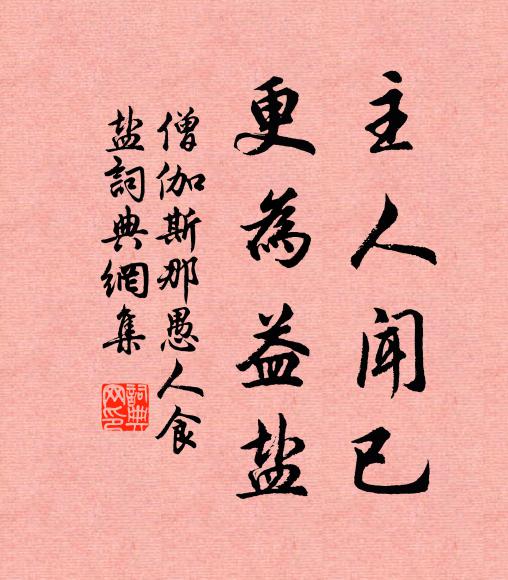 主人闻已
更為益盐
僧伽斯那愚人食
盐詞典網集
詞典
网印